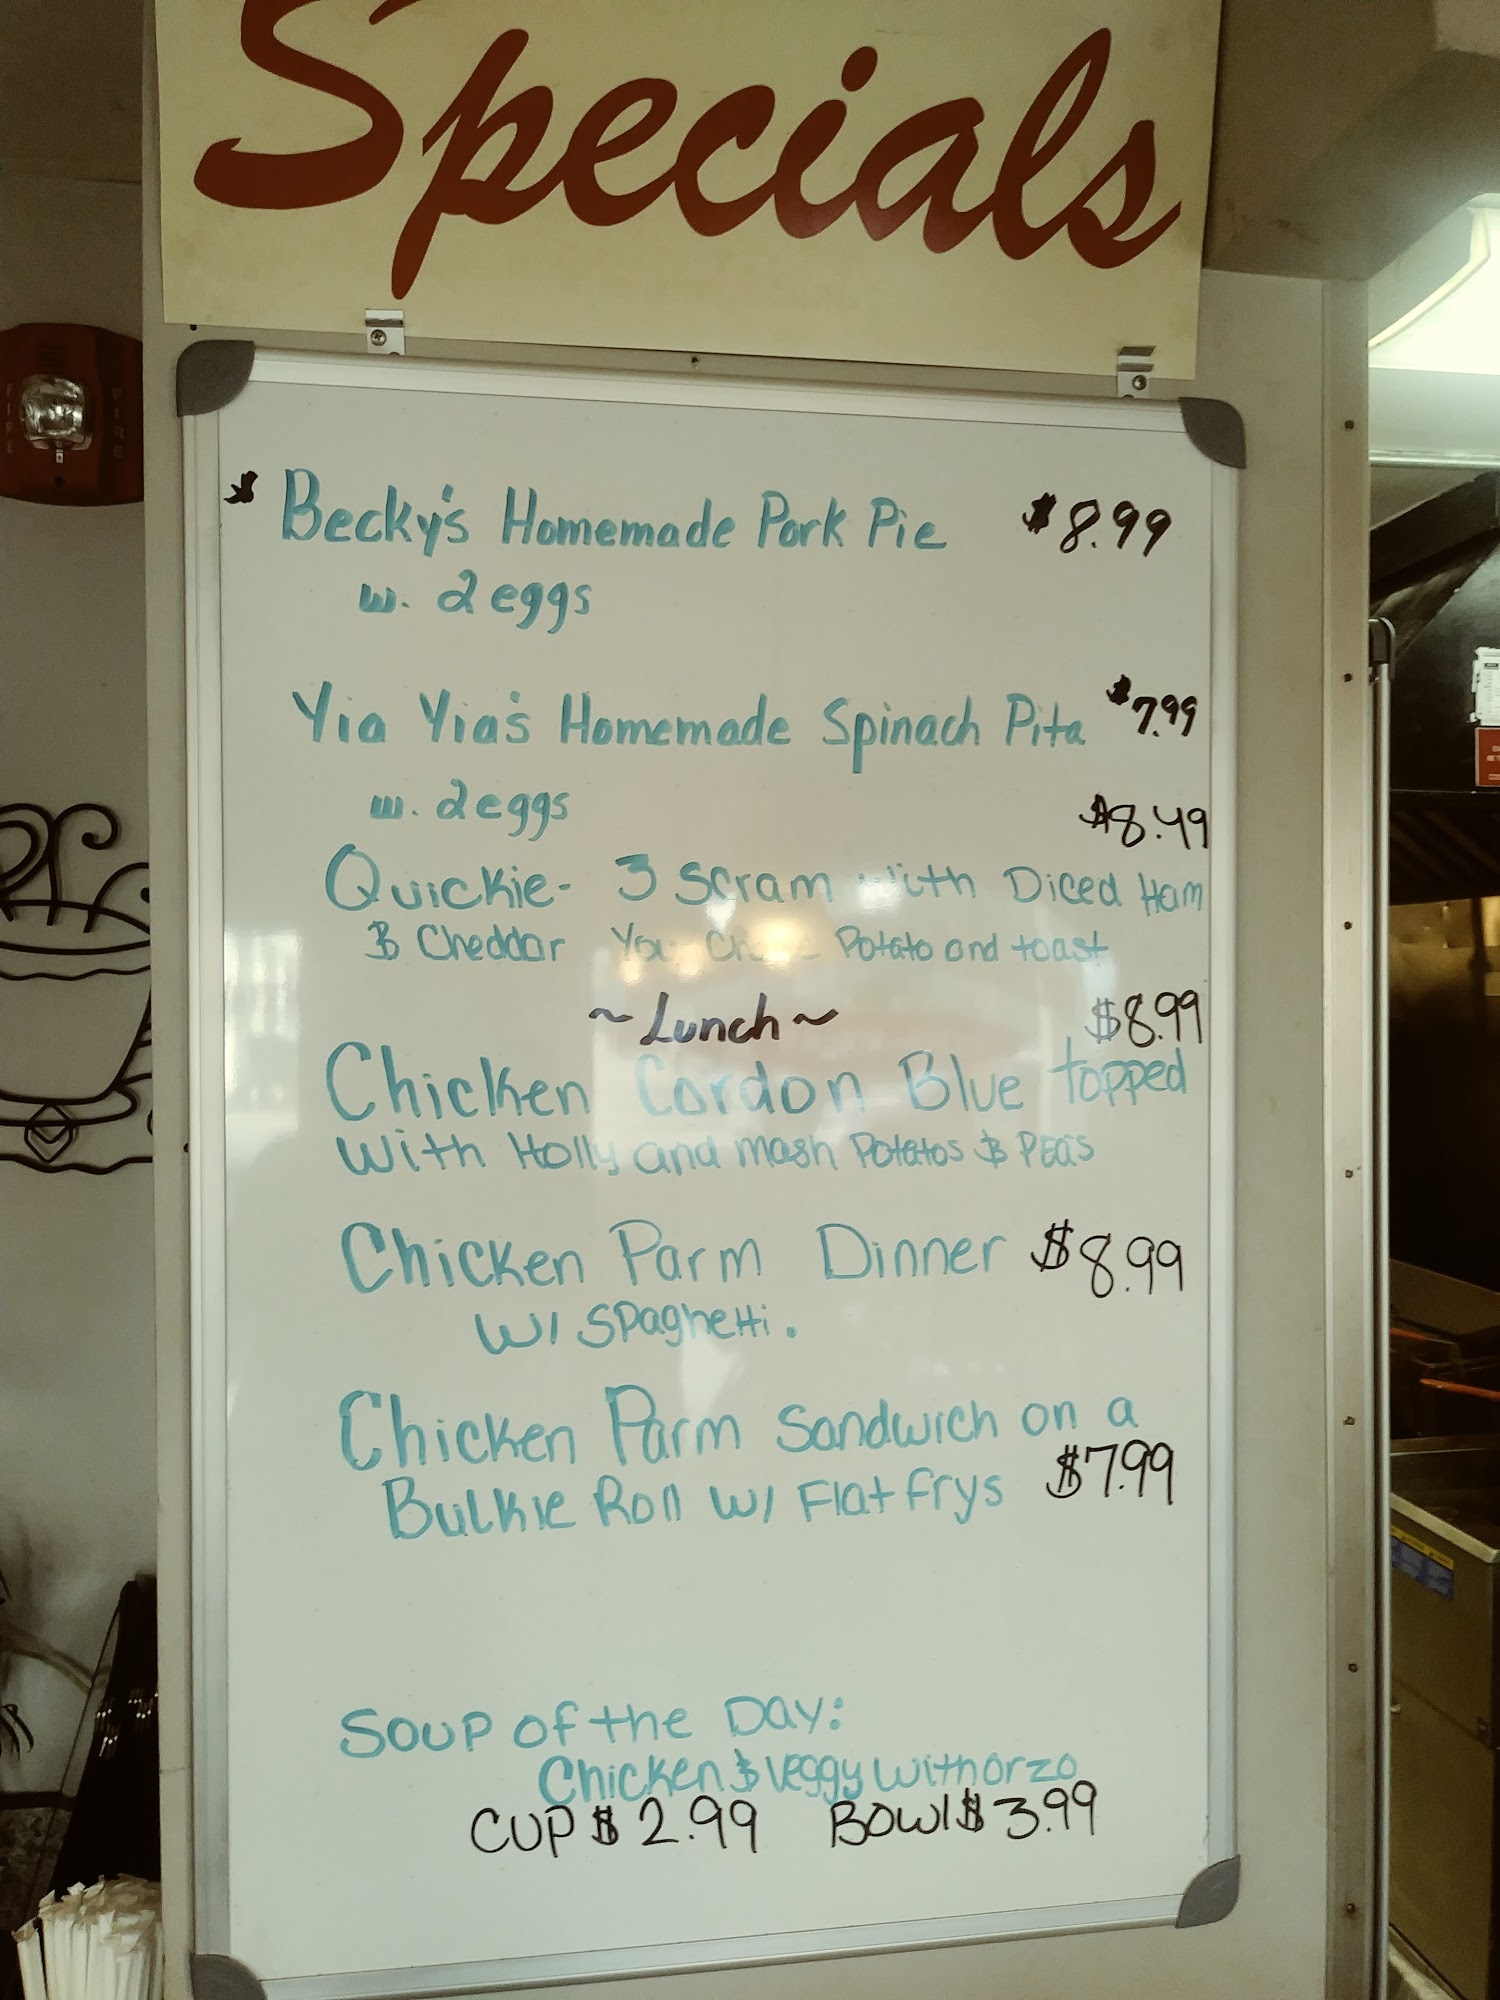 Specials
Becky's Homemade Pork Pie $8.99
w. 2 eggs
Yia Yia's Homemade Spinach Pita $7.99
w. 2 eggs
$8.49
Quickie- 3 Scram with Diced Ham
& Cheddar Your Choice Potato and toast
~Lunch~ $8.99
Chicken Cordon Blue topped
with Holly and mash Potatos & Peas
Chicken Parm Dinner $8.99
W/ Spaghetti.
Chicken Parm Sandwich on a
Bulkie Roll W/ Flat frys $7.99
Soup of the Day:
Chicken & Veggy with orzo
CUP $2.99 BOWl $3.99
FIRE
FIRE